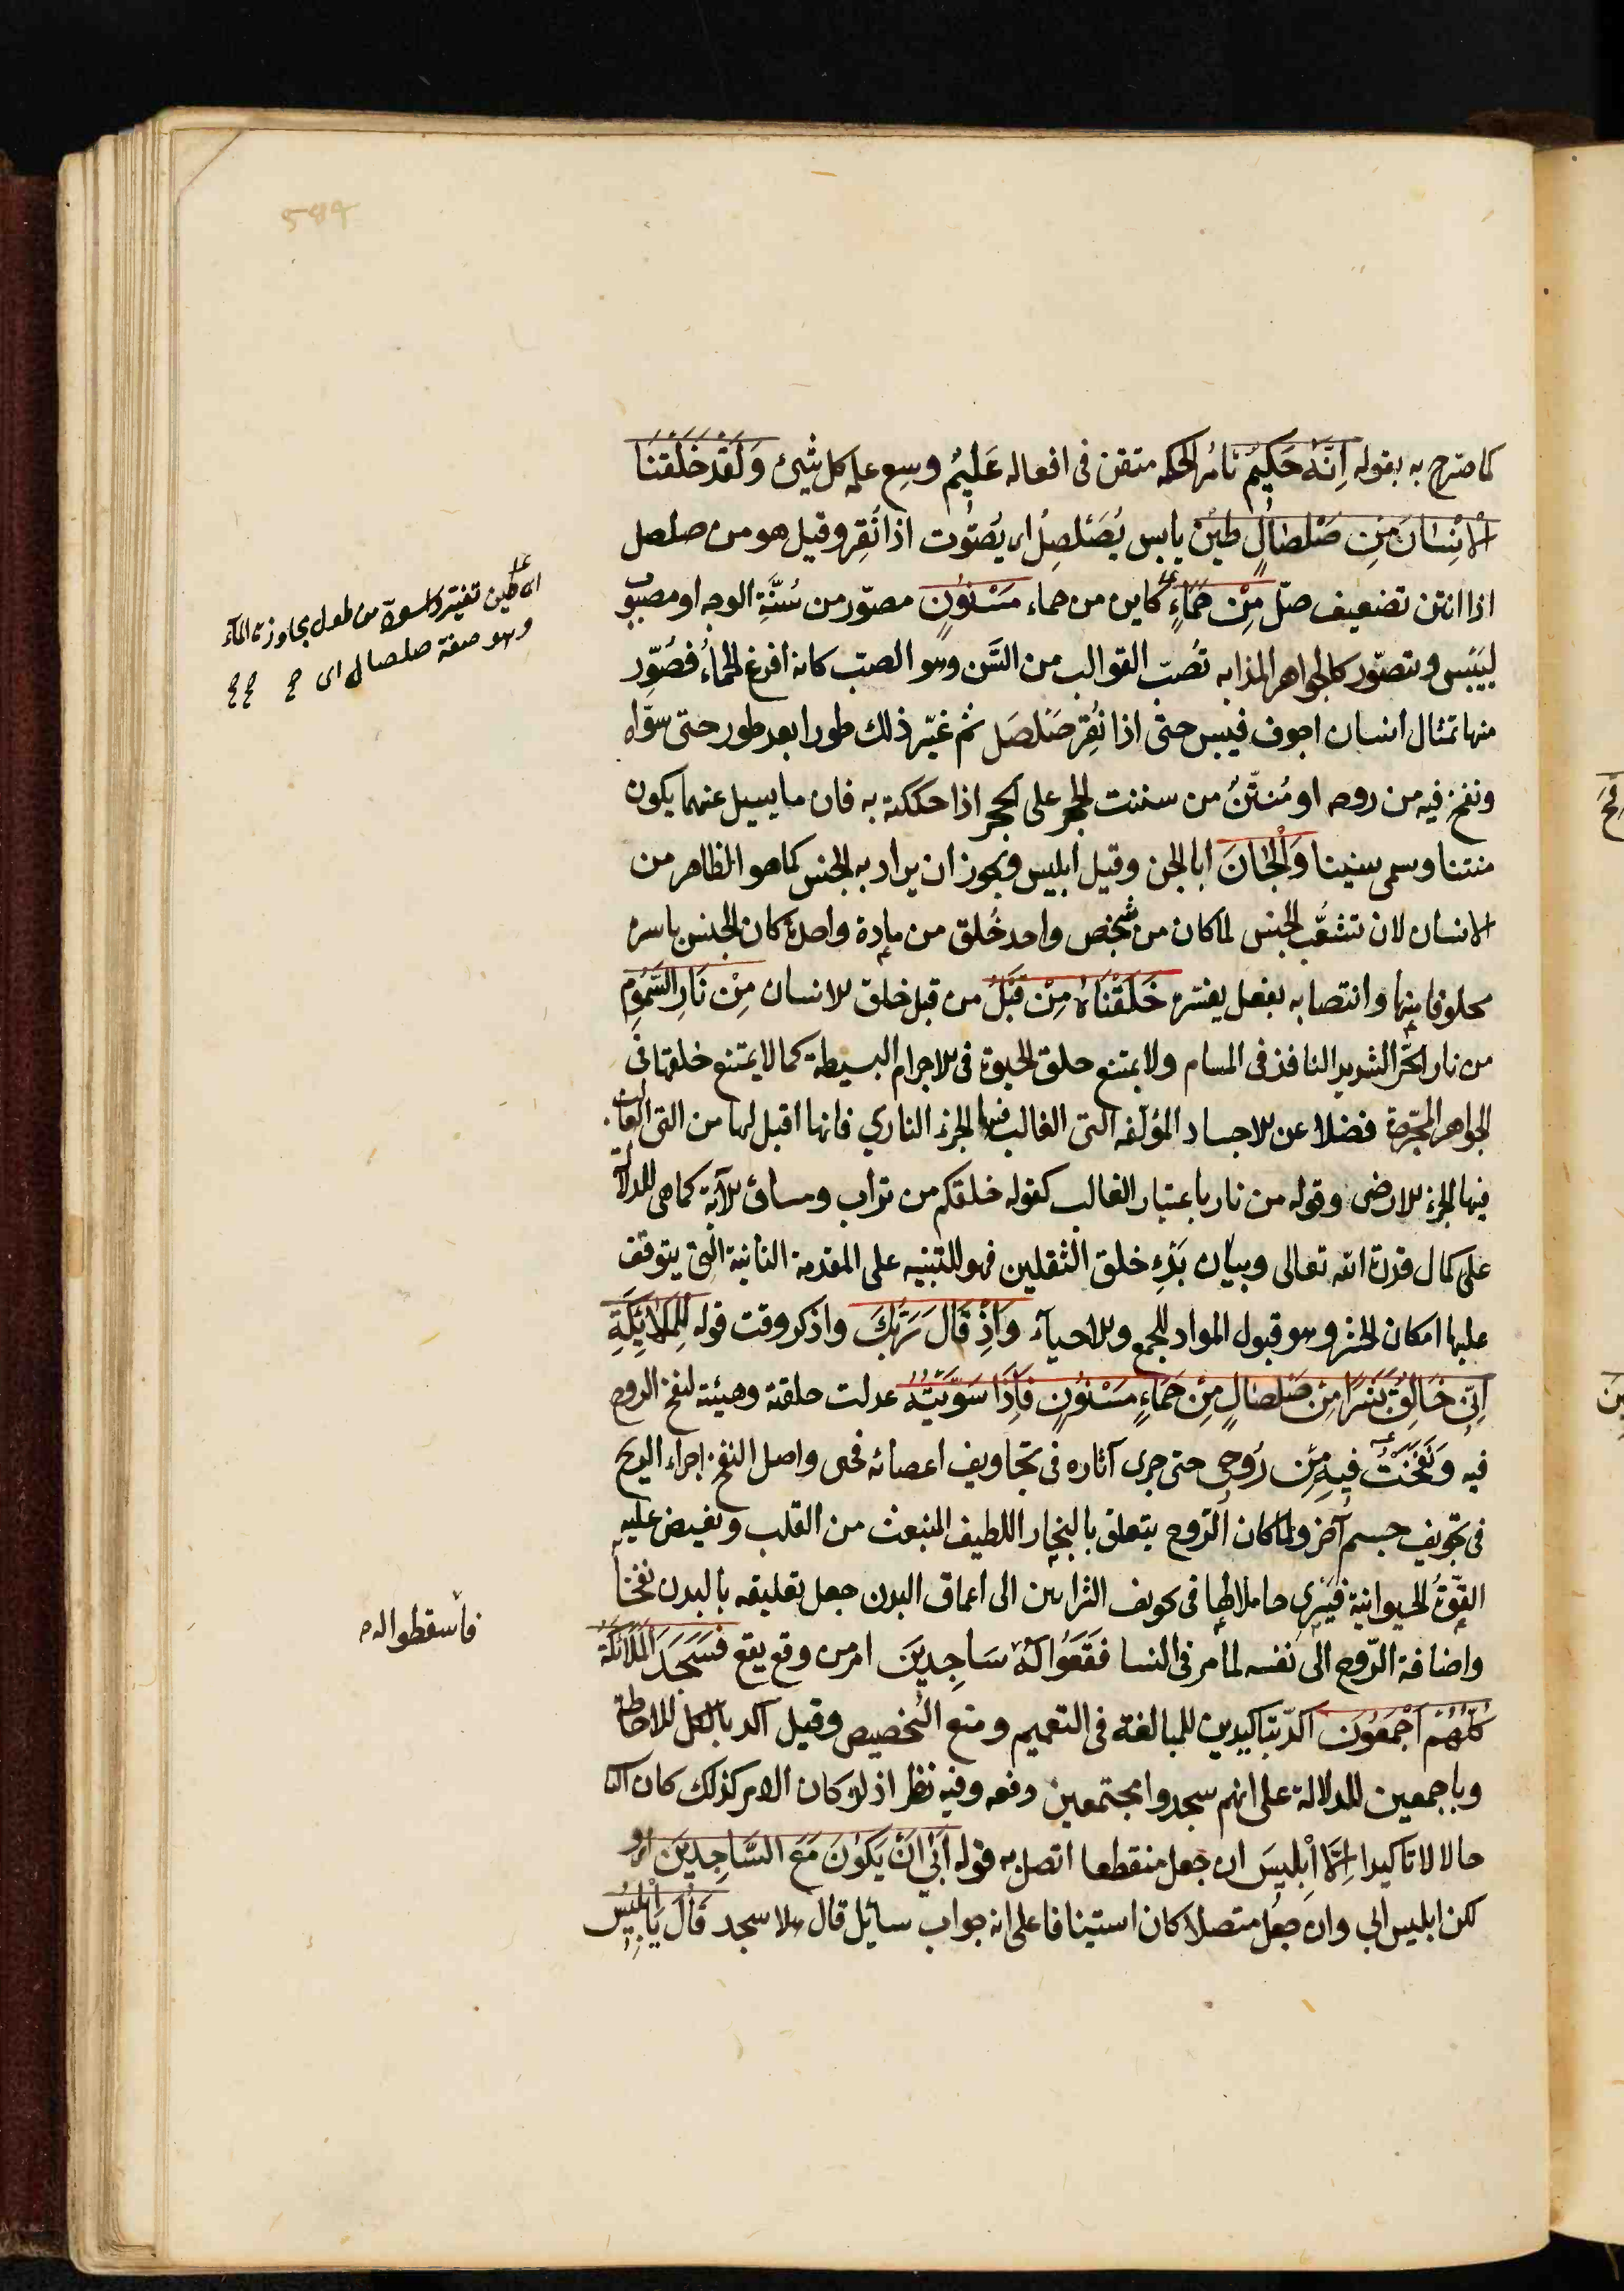 كما صرح به بقوله اِنَّهُ حَكِيمٌ تامُّ الحكمه متقن فى افعاله عَلِيمٌ وسع علمه كل شيئ وَلَقَدْ خَلَقْنَا
الْاِنْسَانَ مِنْ صَلْصَالٍ طين يابس يُصَلصِلُ اى يُصَوّت اذا نُقِر وقيل هو من صلصل
اذا انتن تضعيف صلّ مِنْ حَمَاءٍ كاين من حماء مَسْنُونٍ مصوّر من سُنَّةِ الوجه او مصبوب
ليَيْبَس ويتصوّر كالجواهر المذابه تُصَبّ القوالب من السَّن وهو الصبّ كانه افرغ الحمأُ فصُوّر
منها تمثال انسان اجوف فيبس حتى اذا نُقِر صَلصَل ثم غيّر ذلك طورا بعد طور حتى سوّاه
ونفخ فيه من روحه او مُنتِنٌ من سننت الحجر على الحجر اذا حككته به فان ما يسيل عنهما يكون
منتنا وسمى سنينا وَالْجَانَّ ابا الجن وقيل ابليس ويجوز ان يراد به الجنس كما هو الظاهر من
الانسان لان تشعُّب الجنس لما كان من شخص واحد خُلق من مادة واحدة كان الجنس باسره
مخلوقا منها وانتصابه بفعل يفسّره خَلَقْنَاهُ مِنْ قَبْلُ من قبل خلق الانسان مِنْ نَارِ السَّمُومِ
من نار الحرّ الشديد النافذ فى المسام ولا يمتنع خلق الحيوة فى الاجرام البسيطة كما لا يمتنع خلقها فى
الجواهر المجرّدة فضلا عن الاجساد المؤلّفه التى الغالب فيها الجزء الناري فانها اقبل لها من التى الغالب
فيها الجزء الارضى وقوله من نار باعتبار الغالب كقوله خلقكم من تراب ومساق الآية كما هى للدلالة
على كمال قدرة الله تعالى وبيان بَدْءِ خلق الثقلين فهو للتنبيه على المقدمة الثانية التى يتوقف
عليها امكان الحشر وهو قبول المواد للجمع والاحياء وَاِذْ قَالَ رَبُّكَ واذكر وقت قوله لِلْمَلَائِكَةِ
اِنّى خَالِقٌ بَشَرًا مِنْ صَلْصَالٍ مِنْ حَمَاءٍ مَسْنُونٍ فَاِذَا سَوَّيْتُهُ عدلت خلقته وهيئته لنفخ الروح
فيه وَنَفَخْتُ فِيهِ مِنْ رُوحِى حتى جرى آثاره فى تجاويف اعضائه فحى واصل النفخ اجراء الريح
فى تجويف جسم آخر ولما كان الروح يتعلق بالبخار اللطيف المنبعث من القلب وتفيض عليه
القوّةُ الحيوانية فيسرى حاملا لها فى تجويف الشرايين الى اعماق البدن جعل تعليقه بالبدن نفخا
واضافة الرّوح الى نفسه لما مر فى النسا فَقَعُوا لَهُ سَاجِدِينَ امر من وقع يقع فَسَجَدَ الْمَلَائِكَةُ
كُلُّهُمْ اَجْمَعُونَ اكدّ بتاكيدين للمبالغة فى التعميم ومنع التخصيص وقيل اكد بالكل للاحاطة
وباجمعين للدلالة على انهم سجدوا مجتمعين دفعه وفيه نظر اذ لو كان الامر كذلك كان الثا
حالا لا تاكيدا اِلَّا اِبْلِيسَ ان جعل منقطعا اتصل به قوله اَبَى اَنْ يَكُونَ مَعَ السَّاجِدِينَ اى و
لكن ابليس ابى وان جعل متصلا كان استينافا على انه جواب سائل قال هلا سجد قَالَ يَا اِبْلِيسُ
فاسقطوا له